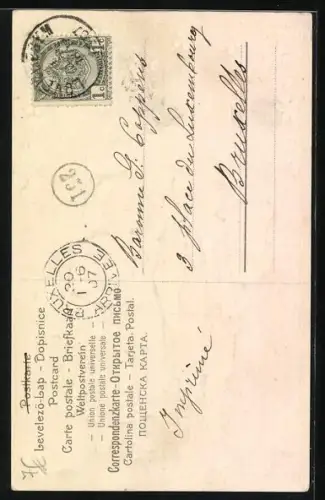 Postkarte
Levelező-Lap - Dopisnice
Postcard
Carte postale - Briefkaart
Weltpostverein
— Union postale universelle —
— Unione postale universale —
Correspondenzkarte - Открытое письмо
Cartolina postale - Tarjeta Postal.
ПОЩЕНСКА КАРТА.
1c
231
BRUXELLES
20
1-6
07
ARRIVÉE
Baronne G. Coppens
3 place du Luxembourg
Bruxelles
Imprimé